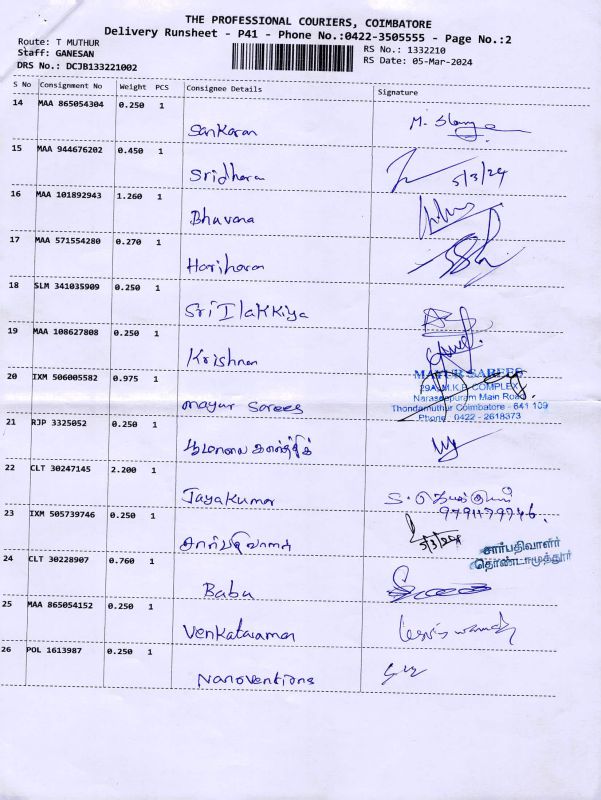 THE PROFESSIONAL COURIERS, COIMBATORE
Delivery Runsheet - P41 - Phone No.:0422-3505555 - Page No.:2
Route: T MUTHUR
Staff: GANESAN
DRS No.: DCJB133221002
RS No.: 1332210
RS Date: 05-Mar-2024
S No Consignment No Weight PCS Consignee Details Signature
14 MAA 865054304 0.250 1 Sankaran
15 MAA 944676202 0.450 1 Sridharan 5/3/24
16 MAA 101892943 1.260 1 Bhuvana
17 MAA 571554280 0.270 1 Hariharan
18 SLM 341035909 0.250 1 Sri Ilakkiya
19 MAA 108627808 0.250 1 Krishnan
20 IXM 506005582 0.975 1 mayur Sarees
MAYUR SAREES
29A, M.K.P. COMPLEX
Naraseepuram Main Road
Thondamuthur Coimbatore - 641 109
Phone : 0422 - 2618373
21 RJP 3325052 0.250 1
22 CLT 30247145 2.200 1 Jayakumar
23 IXM 505739746 0.250 1 5/3/24
சார்பதிவாளர்
தொண்டாமுத்தூர்
24 CLT 30228907 0.760 1 Babu
25 MAA 865054152 0.250 1 Venkataraman
26 POL 1613987 0.250 1 Nanoventions